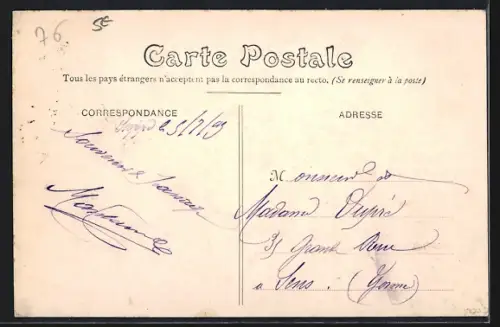 76 5€
Carte Postale
Tous les pays étrangers n'acceptent pas la correspondance au recto. (Se renseigner à la poste)
CORRESPONDANCE
ADRESSE
le 3/7/
Souvenir
Monsieur &
Madame Dupré
35 Grande Rue
à Sens. (Yonne)